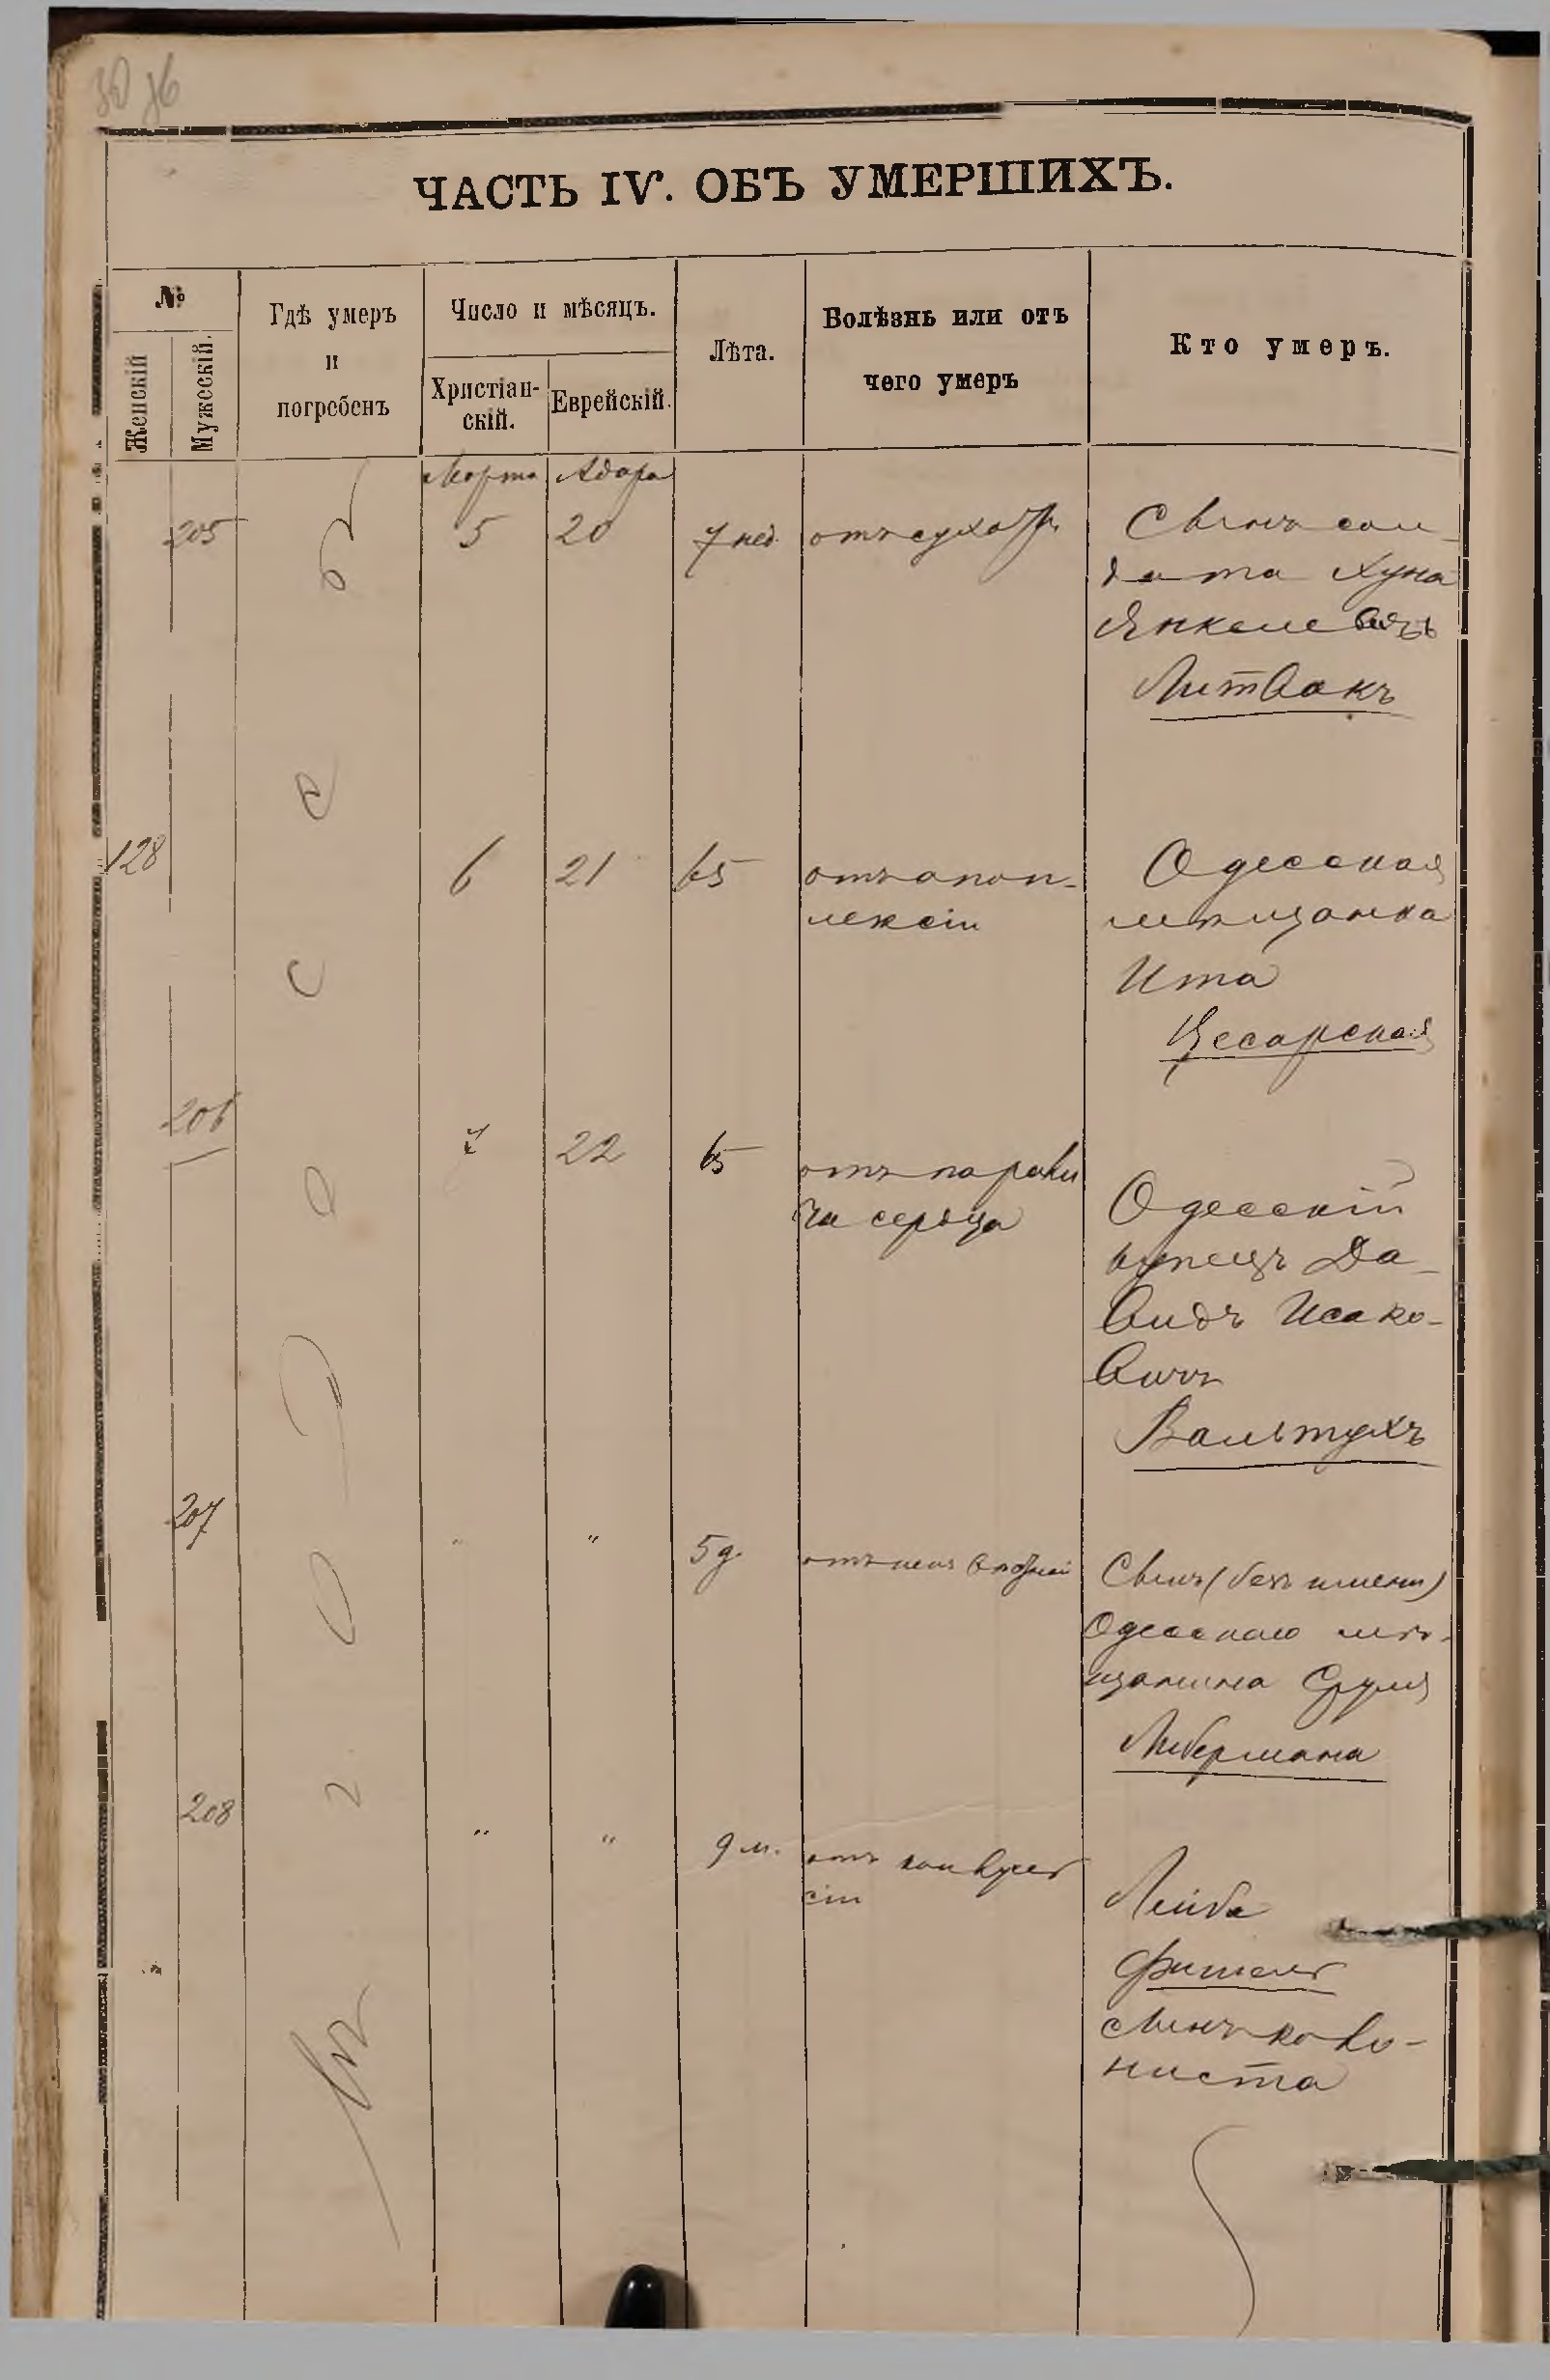 ЧАСТЬ IV. ОБЪ УМЕРШИХЪ.
№
Женскій
Мужескій.
Гдѣ умеръ
и
погребенъ
Число и мѣсяцъ.
Христіан-
скій.
Еврейскій.
Лѣта.
Болѣзнь или отъ
чего умеръ
Кто умеръ.
Марта Адара
205 5 20 7 нед. отъ сухот.
Сынъ сол-
дата Хуна
Янкелевъ
Литвакъ
128 6 21 65 отъ апоп-
лексіи
Одесская
мѣщанка
Ита
Цесарская
206 7 22 65 отъ парали
ча сердца
Одесскій
купецъ Да-
видъ Исако-
вичъ
Вальтухъ
207 " " 5 д.
Сынъ (безъ имени)
Одесскаго мѣ-
щанина Сруля
Либермана
208 " " 9 м. отъ конвуль
сіи
Лейба
Фитель
сынъ коло-
ниста
въ
г
О
д
е
с
с
ѣ